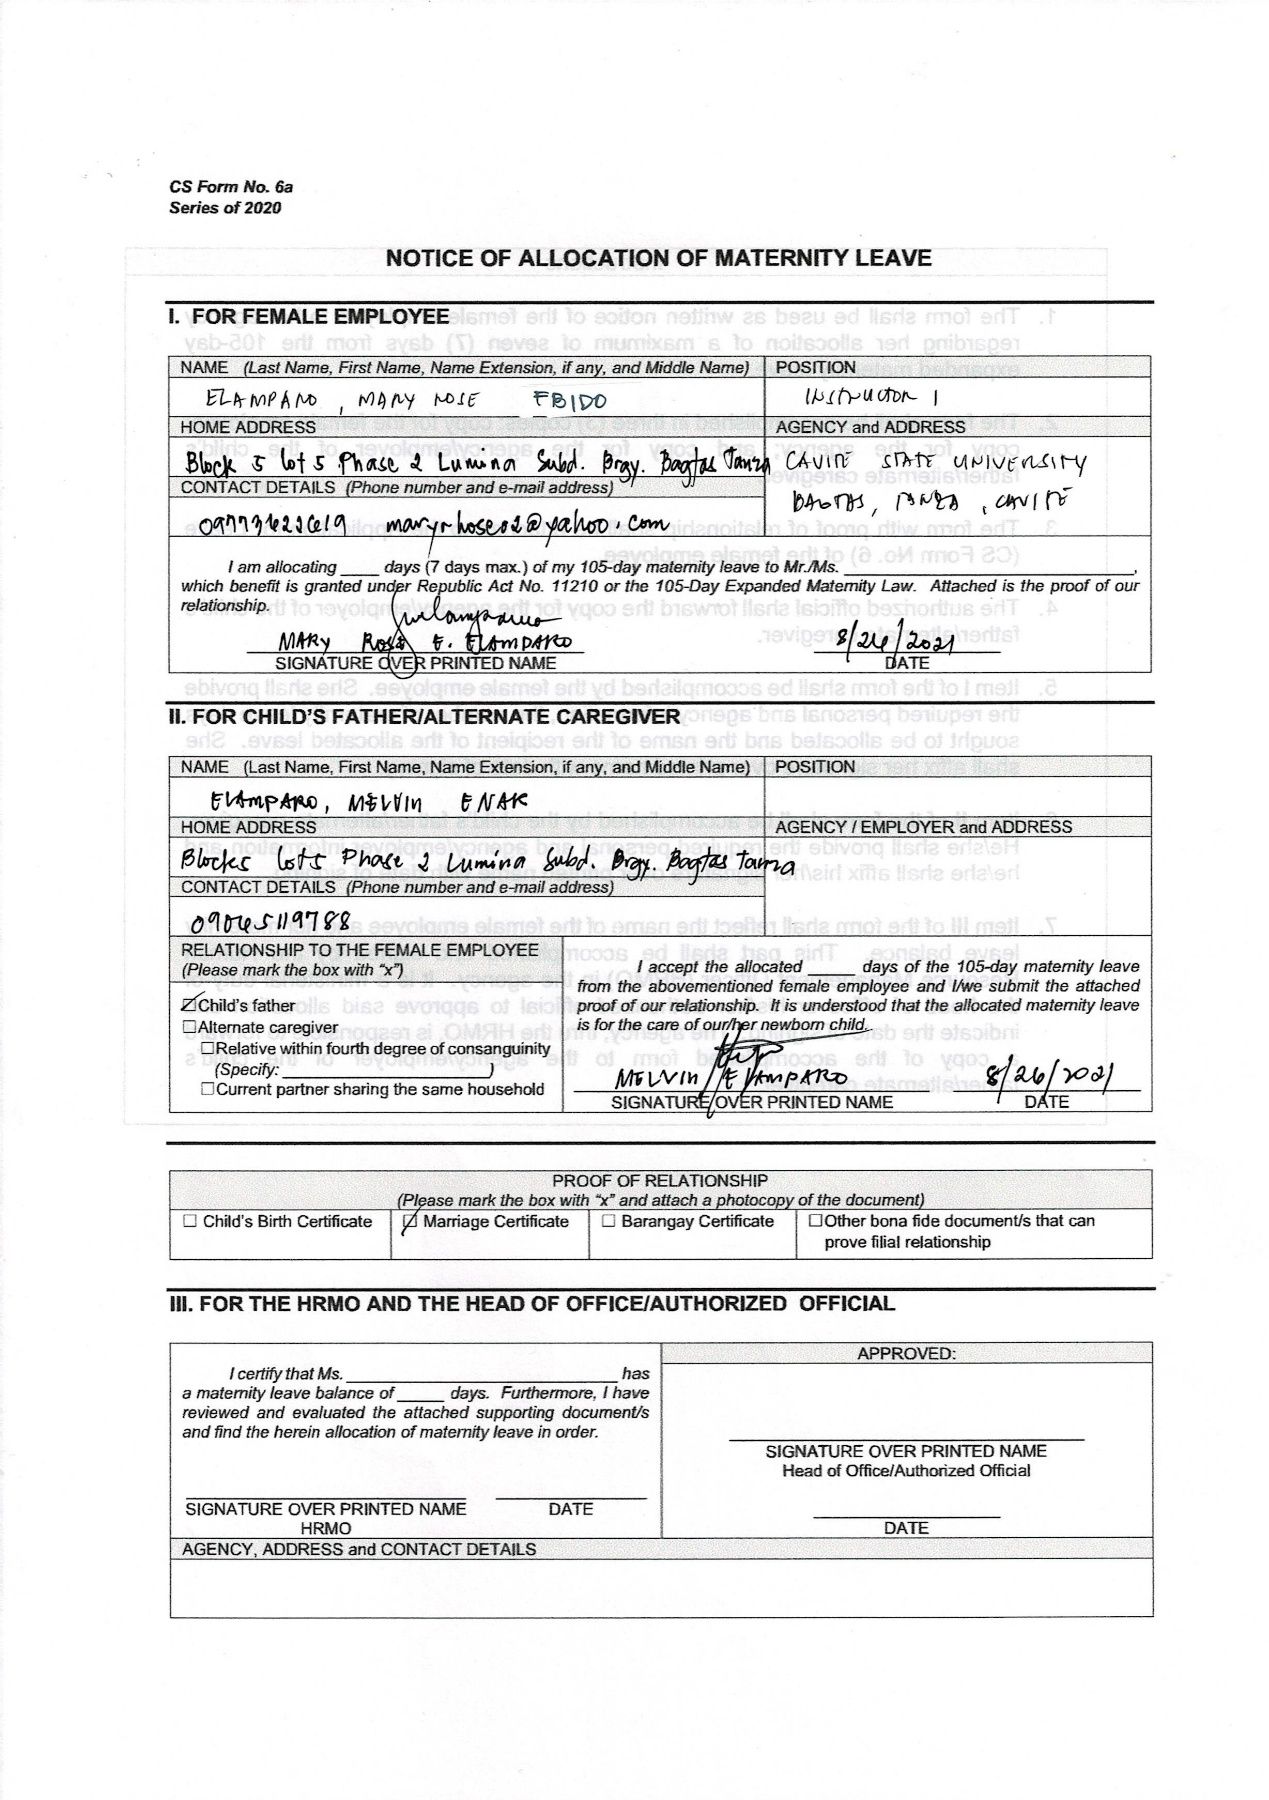 CS Form No. 6a
Series of 2020
NOTICE OF ALLOCATION OF MATERNITY LEAVE
I. FOR FEMALE EMPLOYEE
NAME (Last Name, First Name, Name Extension, if any, and Middle Name) POSITION
ELAMPARO , MARY ROSE INSTRUCTOR 1
HOME ADDRESS AGENCY and ADDRESS
Block 5 Lot 5 Phase 2 Lumina Subd. Brgy. Bagtas Tanza CAVITE STATE UNIVERSITY
CONTACT DETAILS (Phone number and e-mail address) BAGTAS, TANZA , CAVITE
09773622619 maryrhose02@yahoo.com
I am allocating ____ days (7 days max.) of my 105-day maternity leave to Mr./Ms. ______________________________,
which benefit is granted under Republic Act No. 11210 or the 105-Day Expanded Maternity Law. Attached is the proof of our
relationship.
MARY ROSE E. ELAMPARO 8/26/2021
SIGNATURE OVER PRINTED NAME DATE
II. FOR CHILD'S FATHER/ALTERNATE CAREGIVER
NAME (Last Name, First Name, Name Extension, if any, and Middle Name) POSITION
ELAMPARO, MELVIN ENAR
HOME ADDRESS AGENCY / EMPLOYER and ADDRESS
Block5 Lot5 Phase 2 Lumina Subd. Brgy. Bagtas Tanza
CONTACT DETAILS (Phone number and e-mail address)
09065119788
RELATIONSHIP TO THE FEMALE EMPLOYEE
(Please mark the box with "x")
☑Child's father
☐Alternate caregiver
☐Relative within fourth degree of consanguinity
(Specify: ______________________)
☐Current partner sharing the same household
I accept the allocated _____ days of the 105-day maternity leave
from the abovementioned female employee and I/we submit the attached
proof of our relationship. It is understood that the allocated maternity leave
is for the care of our/her newborn child.
MELVIN ELAMPARO 8/26/2021
SIGNATURE OVER PRINTED NAME DATE
PROOF OF RELATIONSHIP
(Please mark the box with "x" and attach a photocopy of the document)
☐ Child's Birth Certificate ☑ Marriage Certificate ☐ Barangay Certificate ☐Other bona fide document/s that can
prove filial relationship
III. FOR THE HRMO AND THE HEAD OF OFFICE/AUTHORIZED OFFICIAL
I certify that Ms. ____________________________ has
a maternity leave balance of _____ days. Furthermore, I have
reviewed and evaluated the attached supporting document/s
and find the herein allocation of maternity leave in order.
SIGNATURE OVER PRINTED NAME DATE
HRMO
APPROVED:
SIGNATURE OVER PRINTED NAME
Head of Office/Authorized Official
DATE
AGENCY, ADDRESS and CONTACT DETAILS